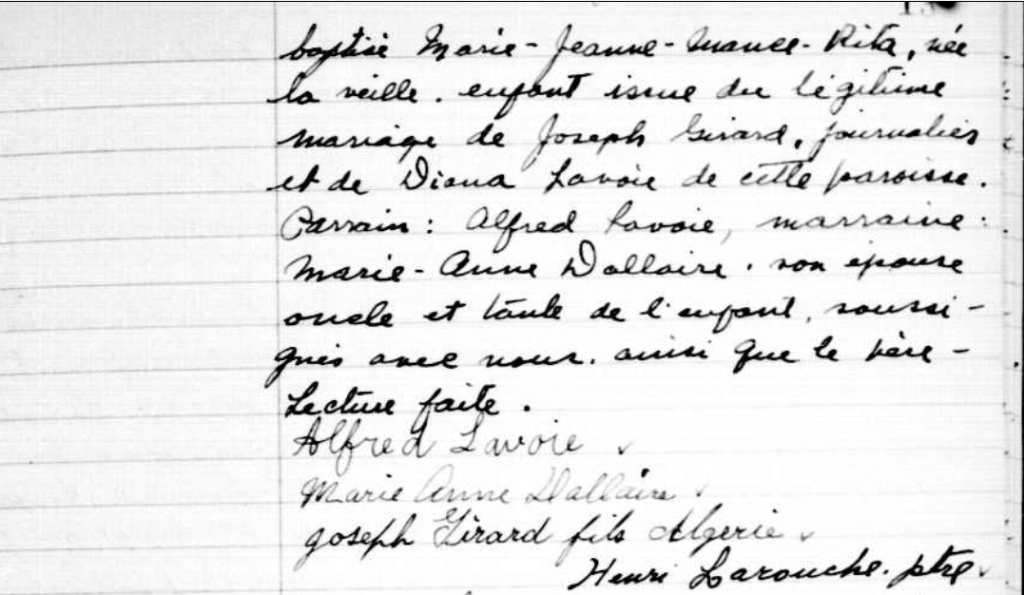 baptisé Marie-Jeanne-Mance-Rita, née
la veille. enfant issue du légitime
mariage de Joseph Girard, journalier
et de Diana Lavoie de cette paroisse.
Parrain: Alfred Lavoie, marraine:
Marie-Anne Dallaire. son épouse
oncle et tante de l'enfant, soussi-
gnés avec nous. ainsi que le père-
Lecture faite.
Alfred Lavoie
Marie Anne Dallaire
Joseph Girard fils Algerie
Henri Larouche. ptre